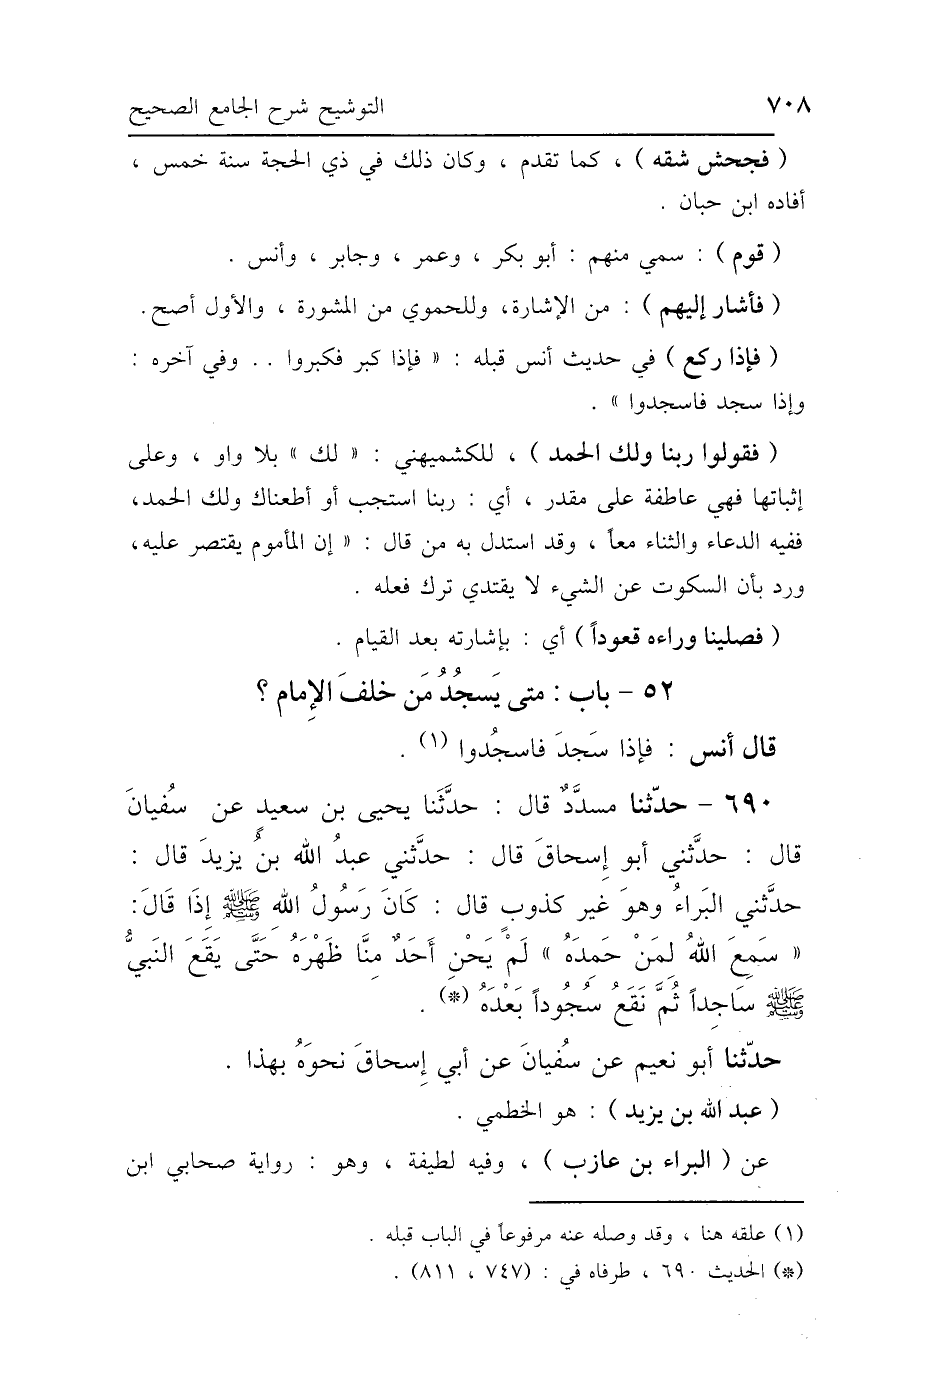 ٧٠٨
التوشيح شرح الجامع الصحيح
( فجحش شقه ) ، كما تقدم ، وكان ذلك في ذي الحجة سنة خمس ،
أفاده ابن حبان .
( قوم ) : سمي منهم : أبو بكر ، وعمر ، وجابر ، وأنس .
( فأشار إليهم ) : من الإشارة، وللحموي من المشورة ، والأول أصح.
( فإذا ركع ) في حديث أنس قبله : « فإذا كبر فكبروا .. وفي آخره :
وإذا سجد فاسجدوا » .
( فقولوا ربنا ولك الحمد ) ، للكشميهني : « لك » بلا واو ، وعلى
إثباتها فهي عاطفة على مقدر ، أي : ربنا استجب أو أطعناك ولك الحمد،
ففيه الدعاء والثناء معاً ، وقد استدل به من قال : « إن المأموم يقتصر عليه،
ورد بأن السكوت عن الشيء لا يقتدي ترك فعله .
( فصلينا وراءه قعوداً ) أي : بإشارته بعد القيام .
٥٢ - باب : متى يَسجُدُ مَن خلفَ الإِمام ؟
قال أنس : فإذا سَجدَ فاسجُدوا (١) .
٦٩٠ - حدّثنا مسدَّدٌ قال : حدَّثَنا يحيى بن سعيدٍ عن سُفيانَ
قال : حدَّثني أبو إسحاقَ قال : حدَّثني عبدُ الله بنُ يزيدَ قال :
حدَّثني البَراءُ وهوَ غير كذوبٍ قال : كَانَ رَسُولُ اللهِ ﷺ إِذَا قَالَ:
« سَمِعَ اللهُ لِمَنْ حَمِدَهُ » لَمْ يَحْنِ أَحَدٌ مِنَّا ظَهْرَهُ حَتَّى يَقَعَ النَبيُّ
ﷺ سَاجِداً ثُمَّ نَقَعُ سُجُوداً بَعْدَهُ (*) .
حدّثنا أبو نعيم عن سُفيانَ عن أبي إِسحاقَ نحوَهُ بهذا .
( عبد الله بن يزيد ) : هو الخطمي .
عن ( البراء بن عازب ) ، وفيه لطيفة ، وهو : رواية صحابي ابن
(١) علقه هنا ، وقد وصله عنه مرفوعاً في الباب قبله .
(*) الحديث ٦٩٠ ، طرفاه في : (٧٤٧ ، ٨١١) .